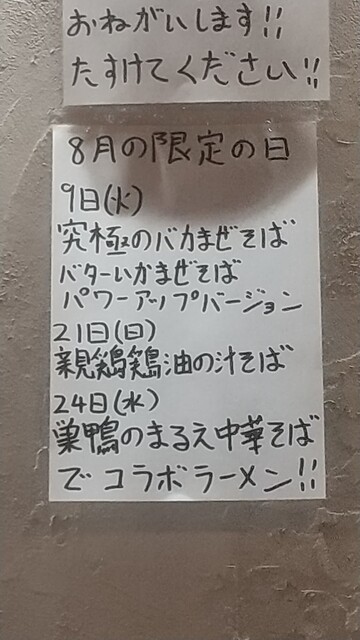 おねがいします!!
たすけてください!!
8月の限定の日
9日(火)
究極のバカまぜそば
バターいかまぜそば
パワーアップバージョン
21日(日)
親鶏鶏油の汁そば
24日(水)
巣鴨のまるえ中華そば
でコラボラーメン!!